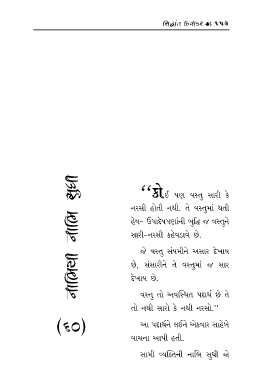 સિદ્ધાંત દિવાકર ૧૫૩
નાભિથી નાભિ સુધી
(૬૦)
“કોઈ પણ વસ્તુ સારી કે
નરસી હોતી નથી. તે વસ્તુમાં થતી
હેય- ઉપાદેયપણાંની બુદ્ધિ જ વસ્તુને
સારી-નરસી કહેવડાવે છે.
જે વસ્તુ સંયમીને અસાર દેખાય
છે, સંસારીને તે વસ્તુમાં જ સાર
દેખાય છે.
વસ્તુ તો અવસ્થિત પદાર્થ છે તે
તો નથી સારો કે નથી નરસો.”
આ પદાર્થને લઈને એકવાર સાહેબે
વાચના આપી હતી.
સામી વ્યક્તિની નાભિ સુધી જો